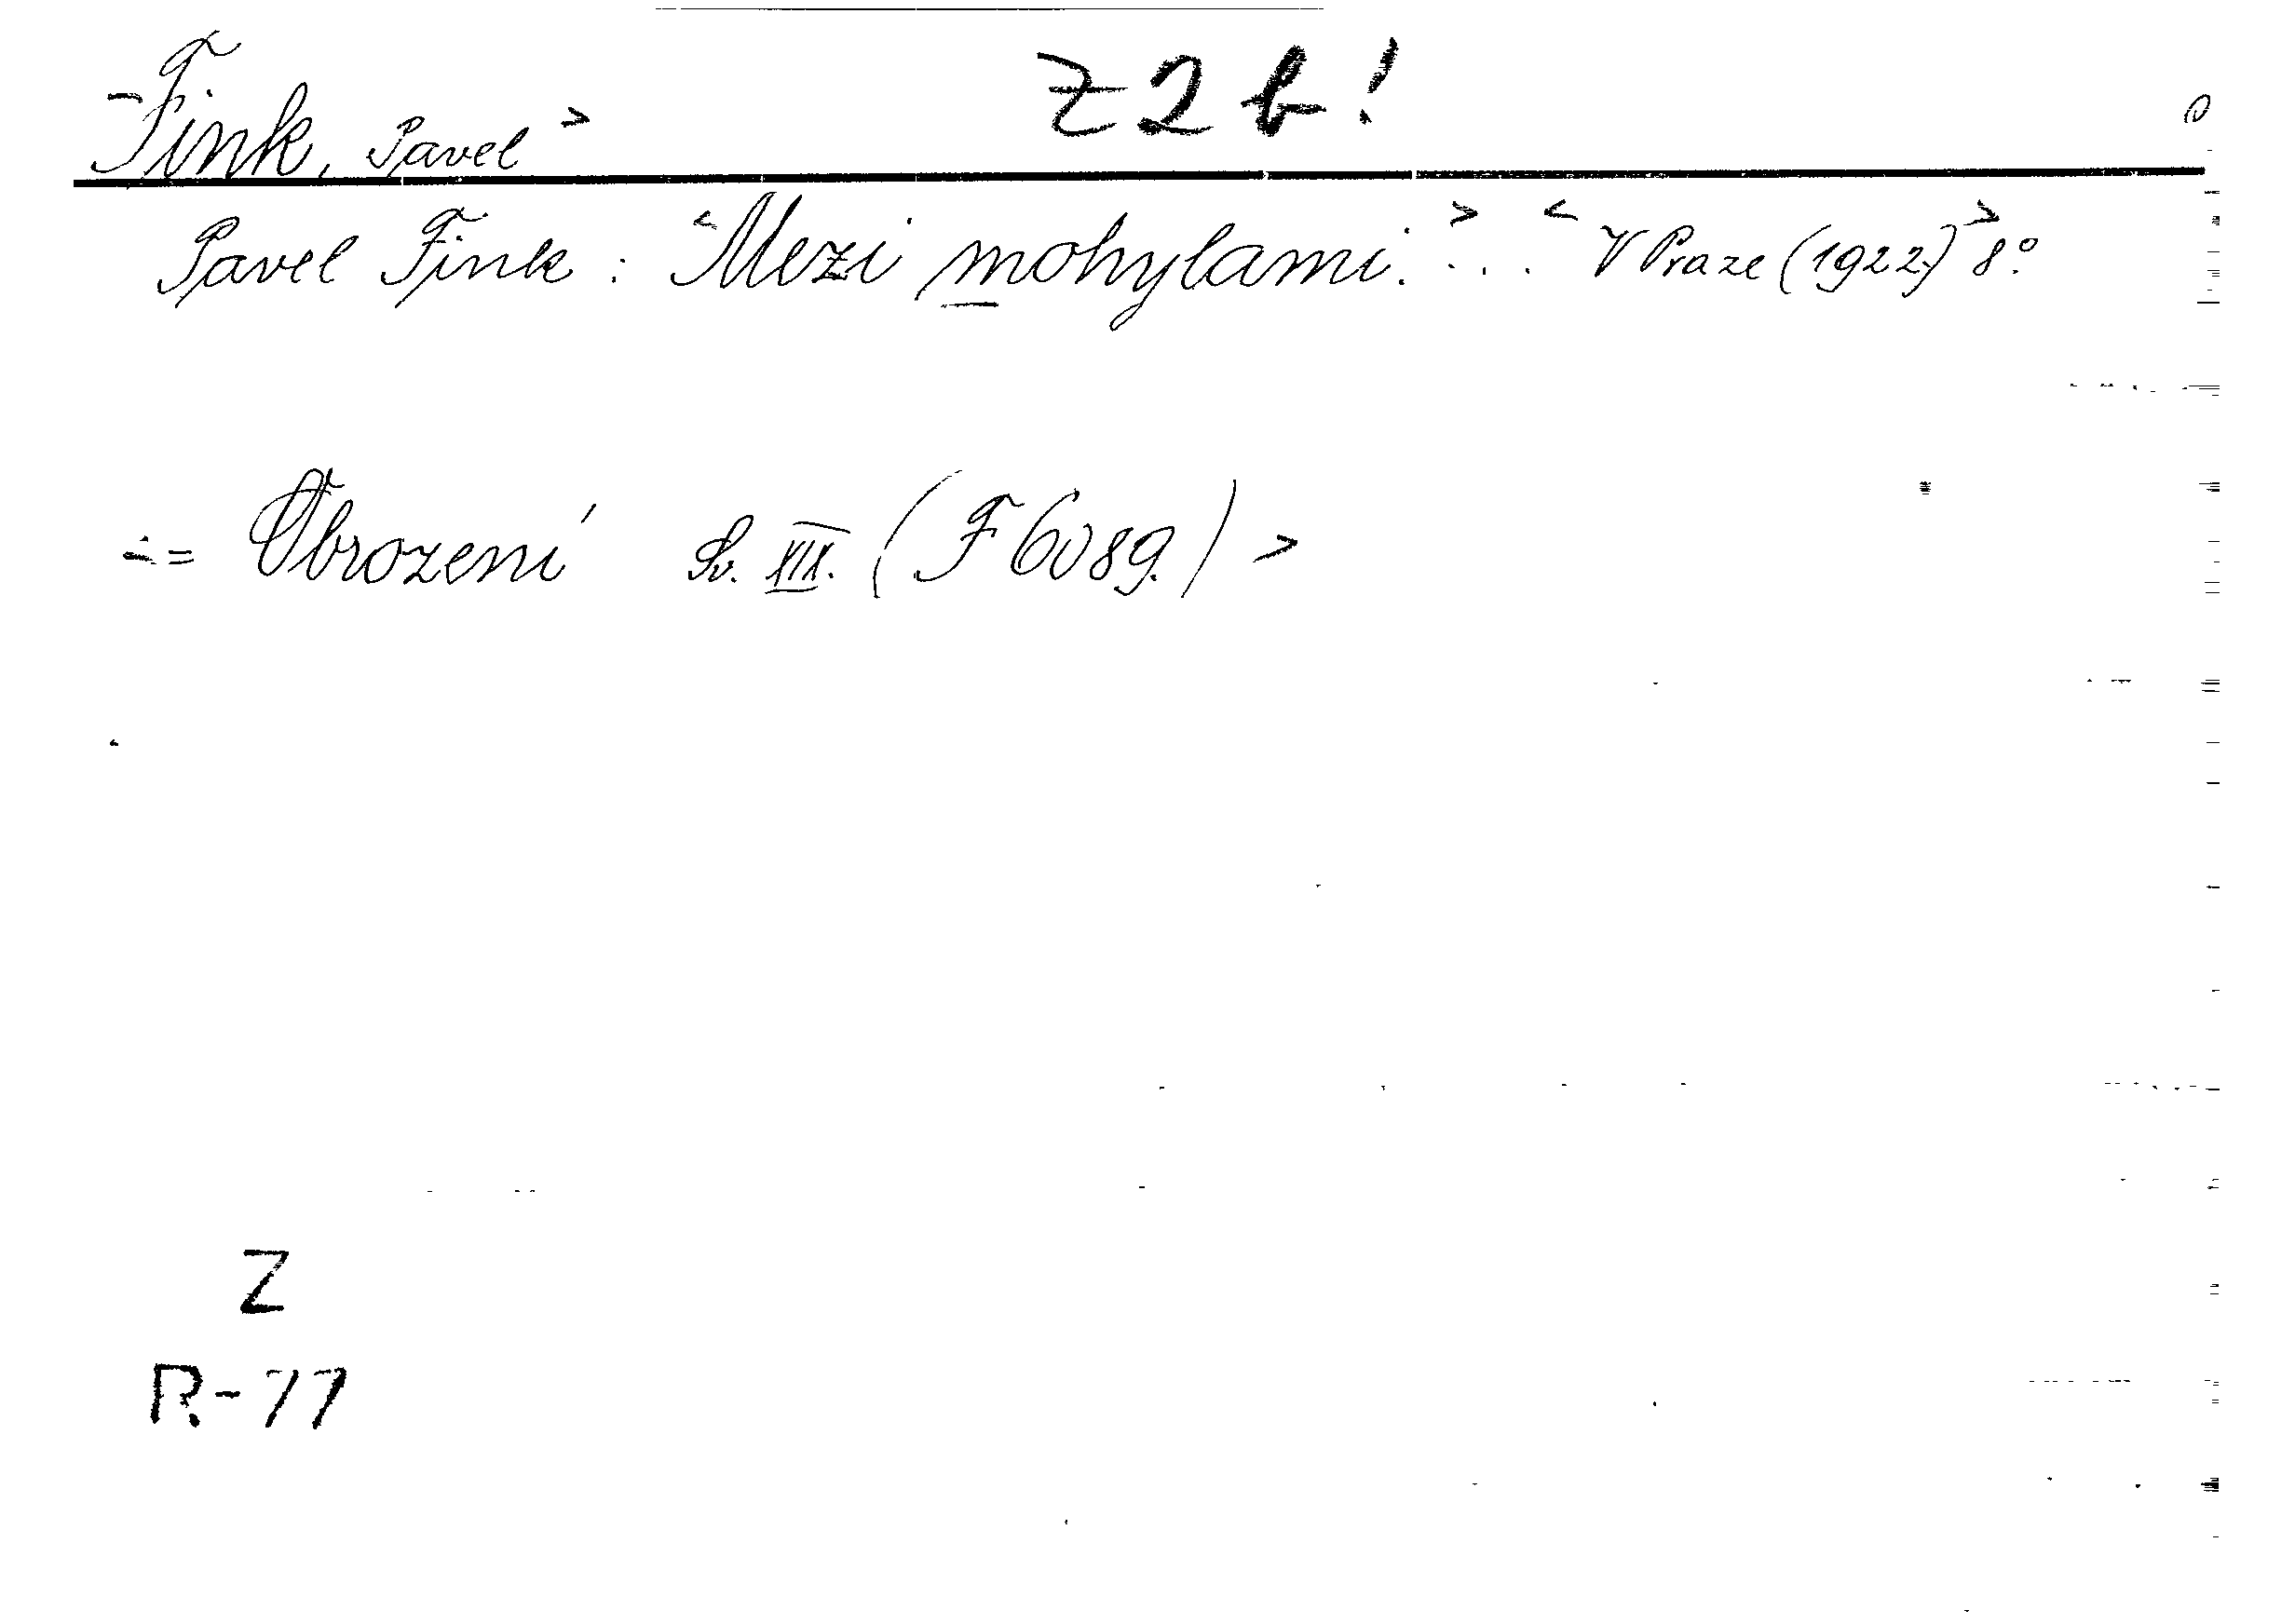 Z 2 b!
Fink, Pavel >
Pavel Fink: <Mezi mohylami.> ... <V Praze (1922)> 8°.
= Obrození Sv. XIX. (F 6089.) >
Z
R-77